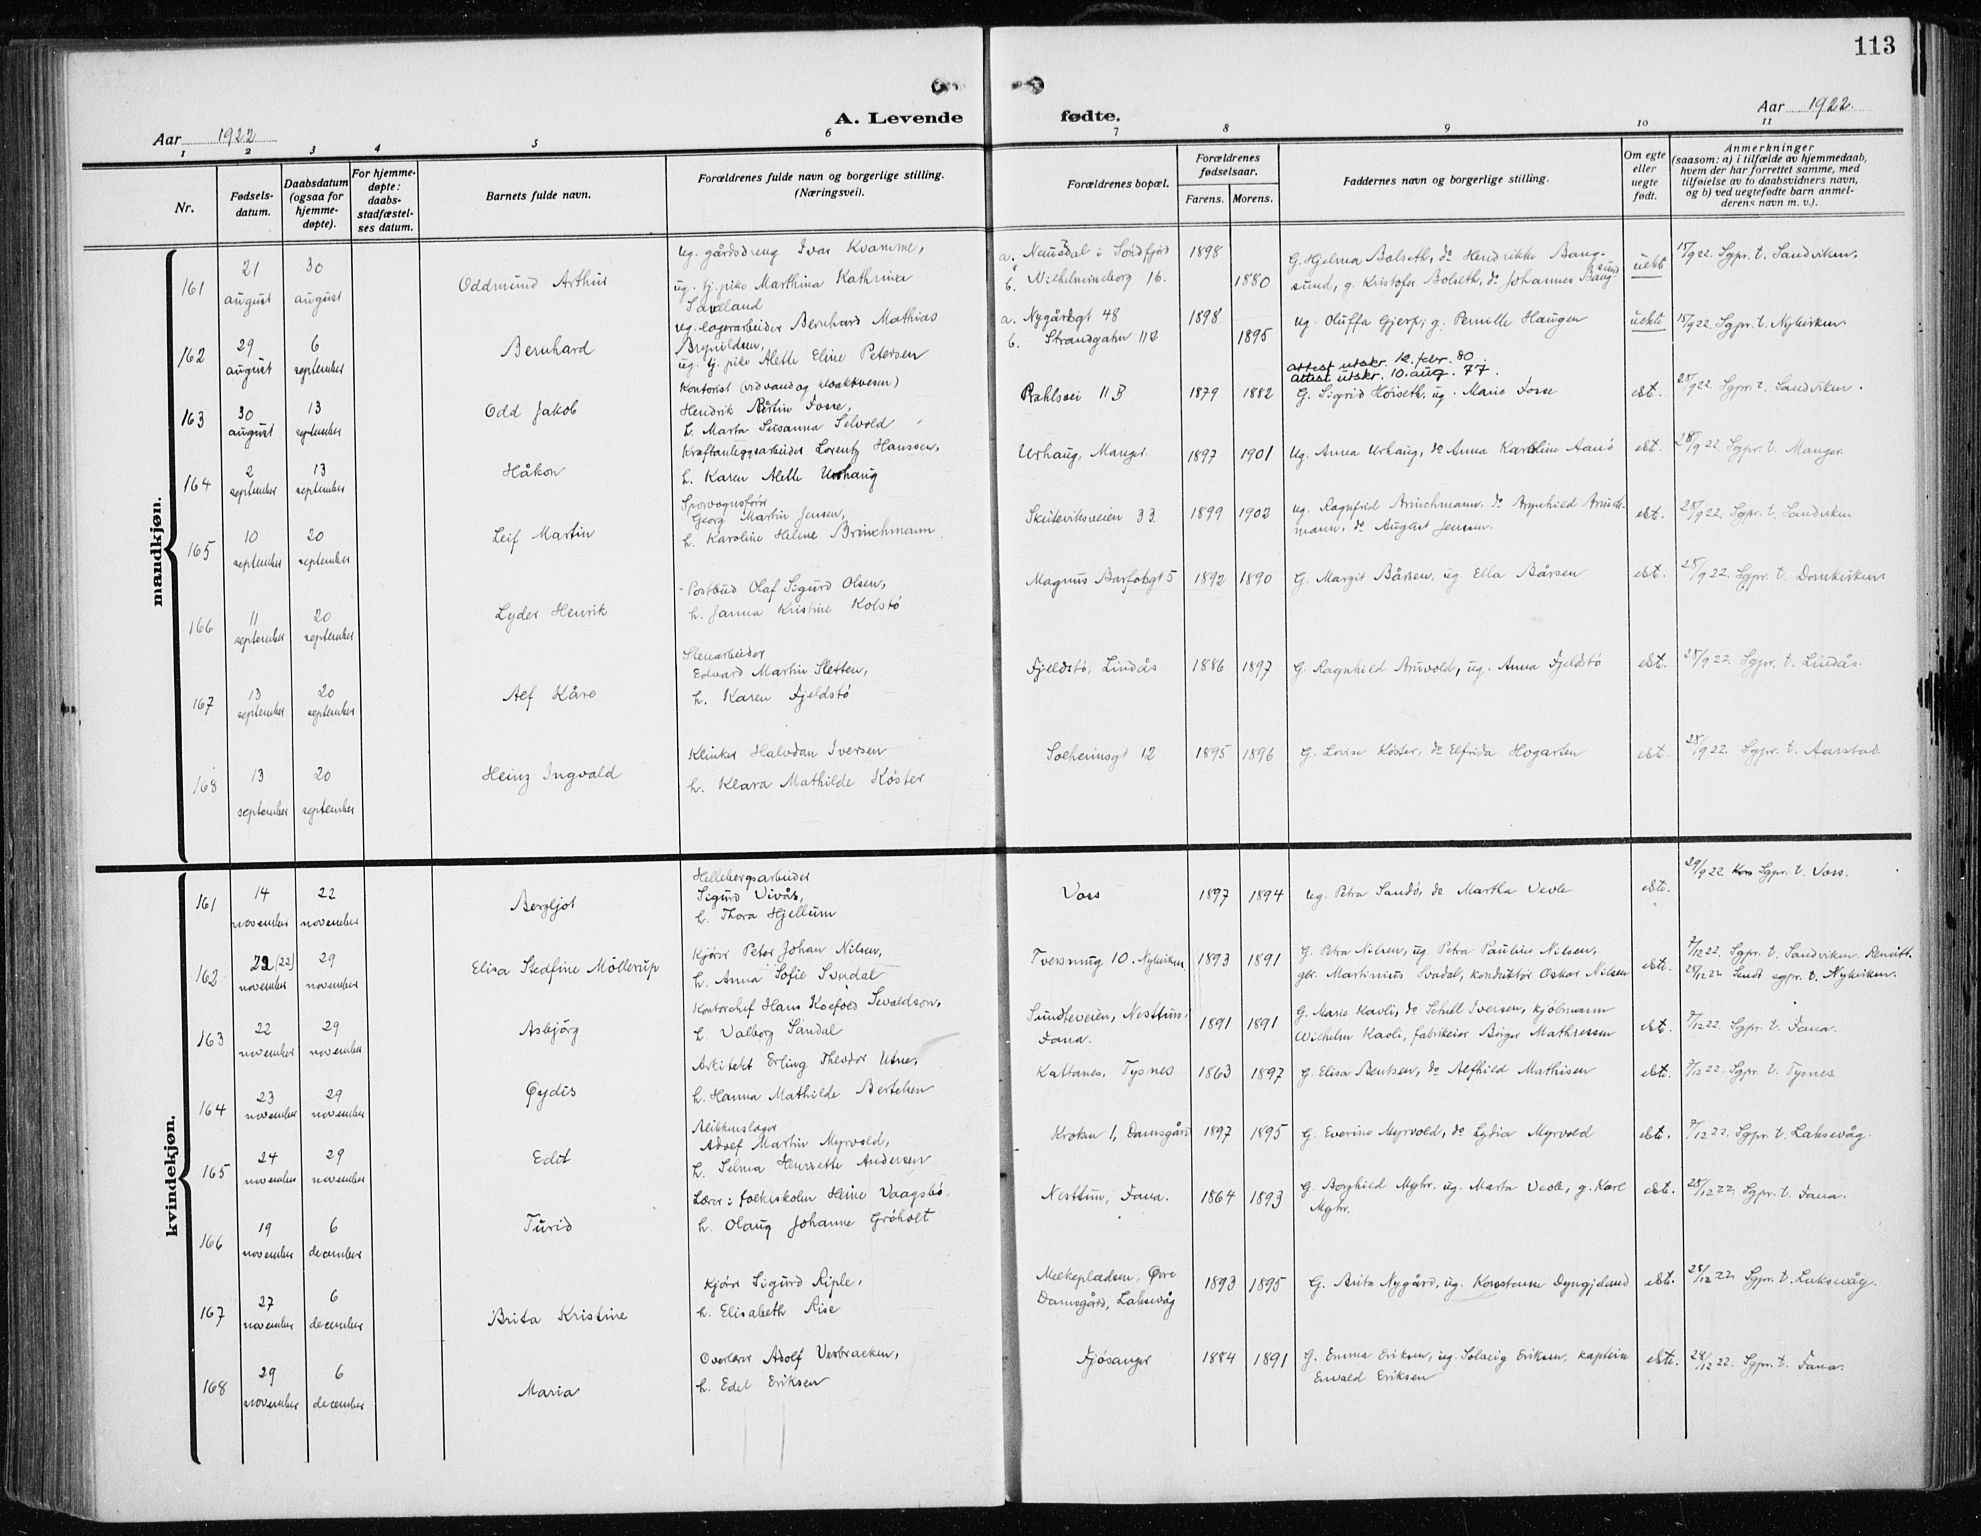 113
A. Levende fødte.
Aar 1922
Aar 1922.
1 2 3 4 5 6 7 8 9 10 11
Nr.
Fødsels-
datum.
Daabsdatum
(ogsaa for
hjemme-
døpte).
For hjemme-
døpte:
daabs-
stadfæstel-
ses datum.
Barnets fulde navn.
Forældrenes fulde navn og borgerlige stilling.
(Næringsvei).
Forældrenes bopæl.
Forældrenes
fødselsaar.
Farens. Morens.
Faddernes navn og borgerlige stilling.
Om egte
eller
uegte
født.
Anmerkninger
(saasom: a) i tilfælde av hjemmedaab,
hvem der har forrettet samme, med
tilføielse av to daabsvidners navn,
og b) ved uegtefødte barn anmel-
derens navn m. v.).
mandkjøn.
161
21
august
30
august
Oddmund Arthur
ug. gårdsdreng Ivar Kvamme,
ug. tj. pike Marthina Kathrina
Saveland
a. Neusdal i Søndfjord
b. Wilhelmineborg 16.
1898
1880
G. Hjelma Bolseth, do Hendrikke Baug-
sund, g. Kristofer Bolseth, do Johannes Baugsund
uekte
15/9 22. Sgpr. t. Sandviken.
162
29
august
6
september
Bernhard
ug. lagerarbeider Bernhard Mathias
Brynildsen,
ug. tj. pike Alette Eline Petersen
a. Nygårdsgt 48
b. Strandgaten 112
1898
1895
ug. Oluffa Gjerp; g. Pernille Haugen
uekte
15/9 22. Sgpr. t. Nykirken.
attest utskr. 12. febr. 80
attest utskr. 10. aug. 77.
163
30
august
13
september
Odd Jakob
Kontorist (vid vand og kloakkvesen)
Hendrik Martin Fosse,
h. Marta Susanna Selvold
Rahlsvei 11 B
1879 1882
G. Sigrid Høiseth, ug. Marie Fosse
ekt.
28/9 22. Sgpr. t. Sandviken.
164
2
september
13
september
Håkon
Kraftanleggsarbeider Lorentz Hanssen,
h. Karen Alette Urhaug
Urhaug, Manger.
1897 1901
ug. Anna Urhaug, do Anna Karoline Aanø
ekt.
28/9 22. Sgpr. t. Manger.
165
10
september
20
september
Leif Martin
Sporvognsfører
Georg Martin Jensen,
h. Karoline Helene Brinchmann.
Skuteviksveien 33
1899 1902
ug. Ragnfrid Brinchmann, do Arnhild Brinch-
mann, do August Jenssen.
ekt.
28/9 22. Sgpr. t. Sandviken
166
11
september
20
september
Lyder Henrik
Postbud Olaf Sigurd Olsen,
h. Janna Kristine Kolstø
Magnus Barfotsgt 5
1892 1890
G. Margit Bårsen, ug Ella Bårsen
ekt.
28/9 22. Sgpr. t. Domkirken.
167
13
september
20
september
Alf Kåre
Stenarbeider
Edvard Martin Sletten,
h. Karen Fjeldstø
Fjeldstø, Lindås
1886 1897
G. Ragnhild Arnvold, ug. Anna Fjeldstø
ekt.
28/9 22. Sgpr. t. Lindås.
168
13
september
20
september
Heinz Ingvald
Klinker Halvdan Iversen
h. Klara Mathilde Köster
Solheimsgt 12
1895 1896
G. Lovise Köster, do Elfrida Hogarten
ekt.
28/9 22. Sgpr. t. Aarstad.
kvindekjøn.
161
14
november
22
november
Bergljot
Hellebergsarbeider
Sigurd Vivås,
h. Thora Hjellum
Voss
1897 1894
ug. Petra Sandø, do Martha Vevle
ekte.
29/9 22 Sgpr. t. Voss.
162
22 (22)
november
29
november
Elisa Stedfine Möllerup
Kjører Peter Johan Nilsen,
h. Anna Sofie Svadal
Tverrsmug 10. Nykirken
1893 1891
G. Petra Nilsen, ug. Petra Pauline Nilsen,
gbr. Martinius Svadal, konduktør Oskar Nilsen
ekte.
7/12 22. Sgpr. t. Sandviken. Remitt.
28/12 22 Sendt sgpr. t. Nykirken.
163
22
november
29
november
Asbjörg
Kontorchef Hans Koefoed Sevaldson,
h. Valborg Sandal
Sundtveien, Nesttun.
Fana.
1891 1891
G. Marie Kavli, do Schell Iversen, kjøbmann
Wilhelm Kavli, fabrikeier Birger Mathiessen
ekte.
7/12 22. Sgpr. t. Fana.
164
23
november
29
november
Øydis
Arkitekt Erling Theodor Utne,
h. Hanna Mathilde Bertehen
Kattanes, Tysnes
1863 1897
G. Elisa Bentsen, do Alfhild Mathisen
ekte.
7/12 22. Sgpr. t. Tysnes
165
24
november
29
november
Edit
Blikkenslager
Adolf Martin Myrvold,
h. Selma Henriette Andersen
Kroken 1, Damsgård
1897 1895
G. Everine Myrvold, do Lydia Myrvold
ekte.
7/12 22. Sgpr. t. Laksevåg.
166
19
november
6
december
Turid
Lærer i folkeskolen Heine Vaagsbø.
h. Olaug Johanne Gröholt
Nesttun, Fana.
1864 1893
G. Borghild Myhr, ug. Marta Vevle, g. Karl
Myhr.
ekte.
28/12 22. Sgpr. t. Fana.
167
27
november
6
december
Brita Kristine
Kjører Sigurd Riple,
h. Elisabeth Rise
Melkeplassen, Øvre
Damsgård, Laksevåg
1893 1895
G. Brita Nygård, ug. Konstanse Dyngjeland
ekte.
28/12 22. Sgpr. t. Laksevåg.
168
29
november
6
december
Maria
Overlærer Adolf Verbraeken,
h. Edel Eriksen
Fjøsanger
1884 1891
G. Emma Eriksen, ug. Solveig Eriksen, kaptein
Ervald Eriksen
ekte.
28/12 22. Sgpr. t. Fana.